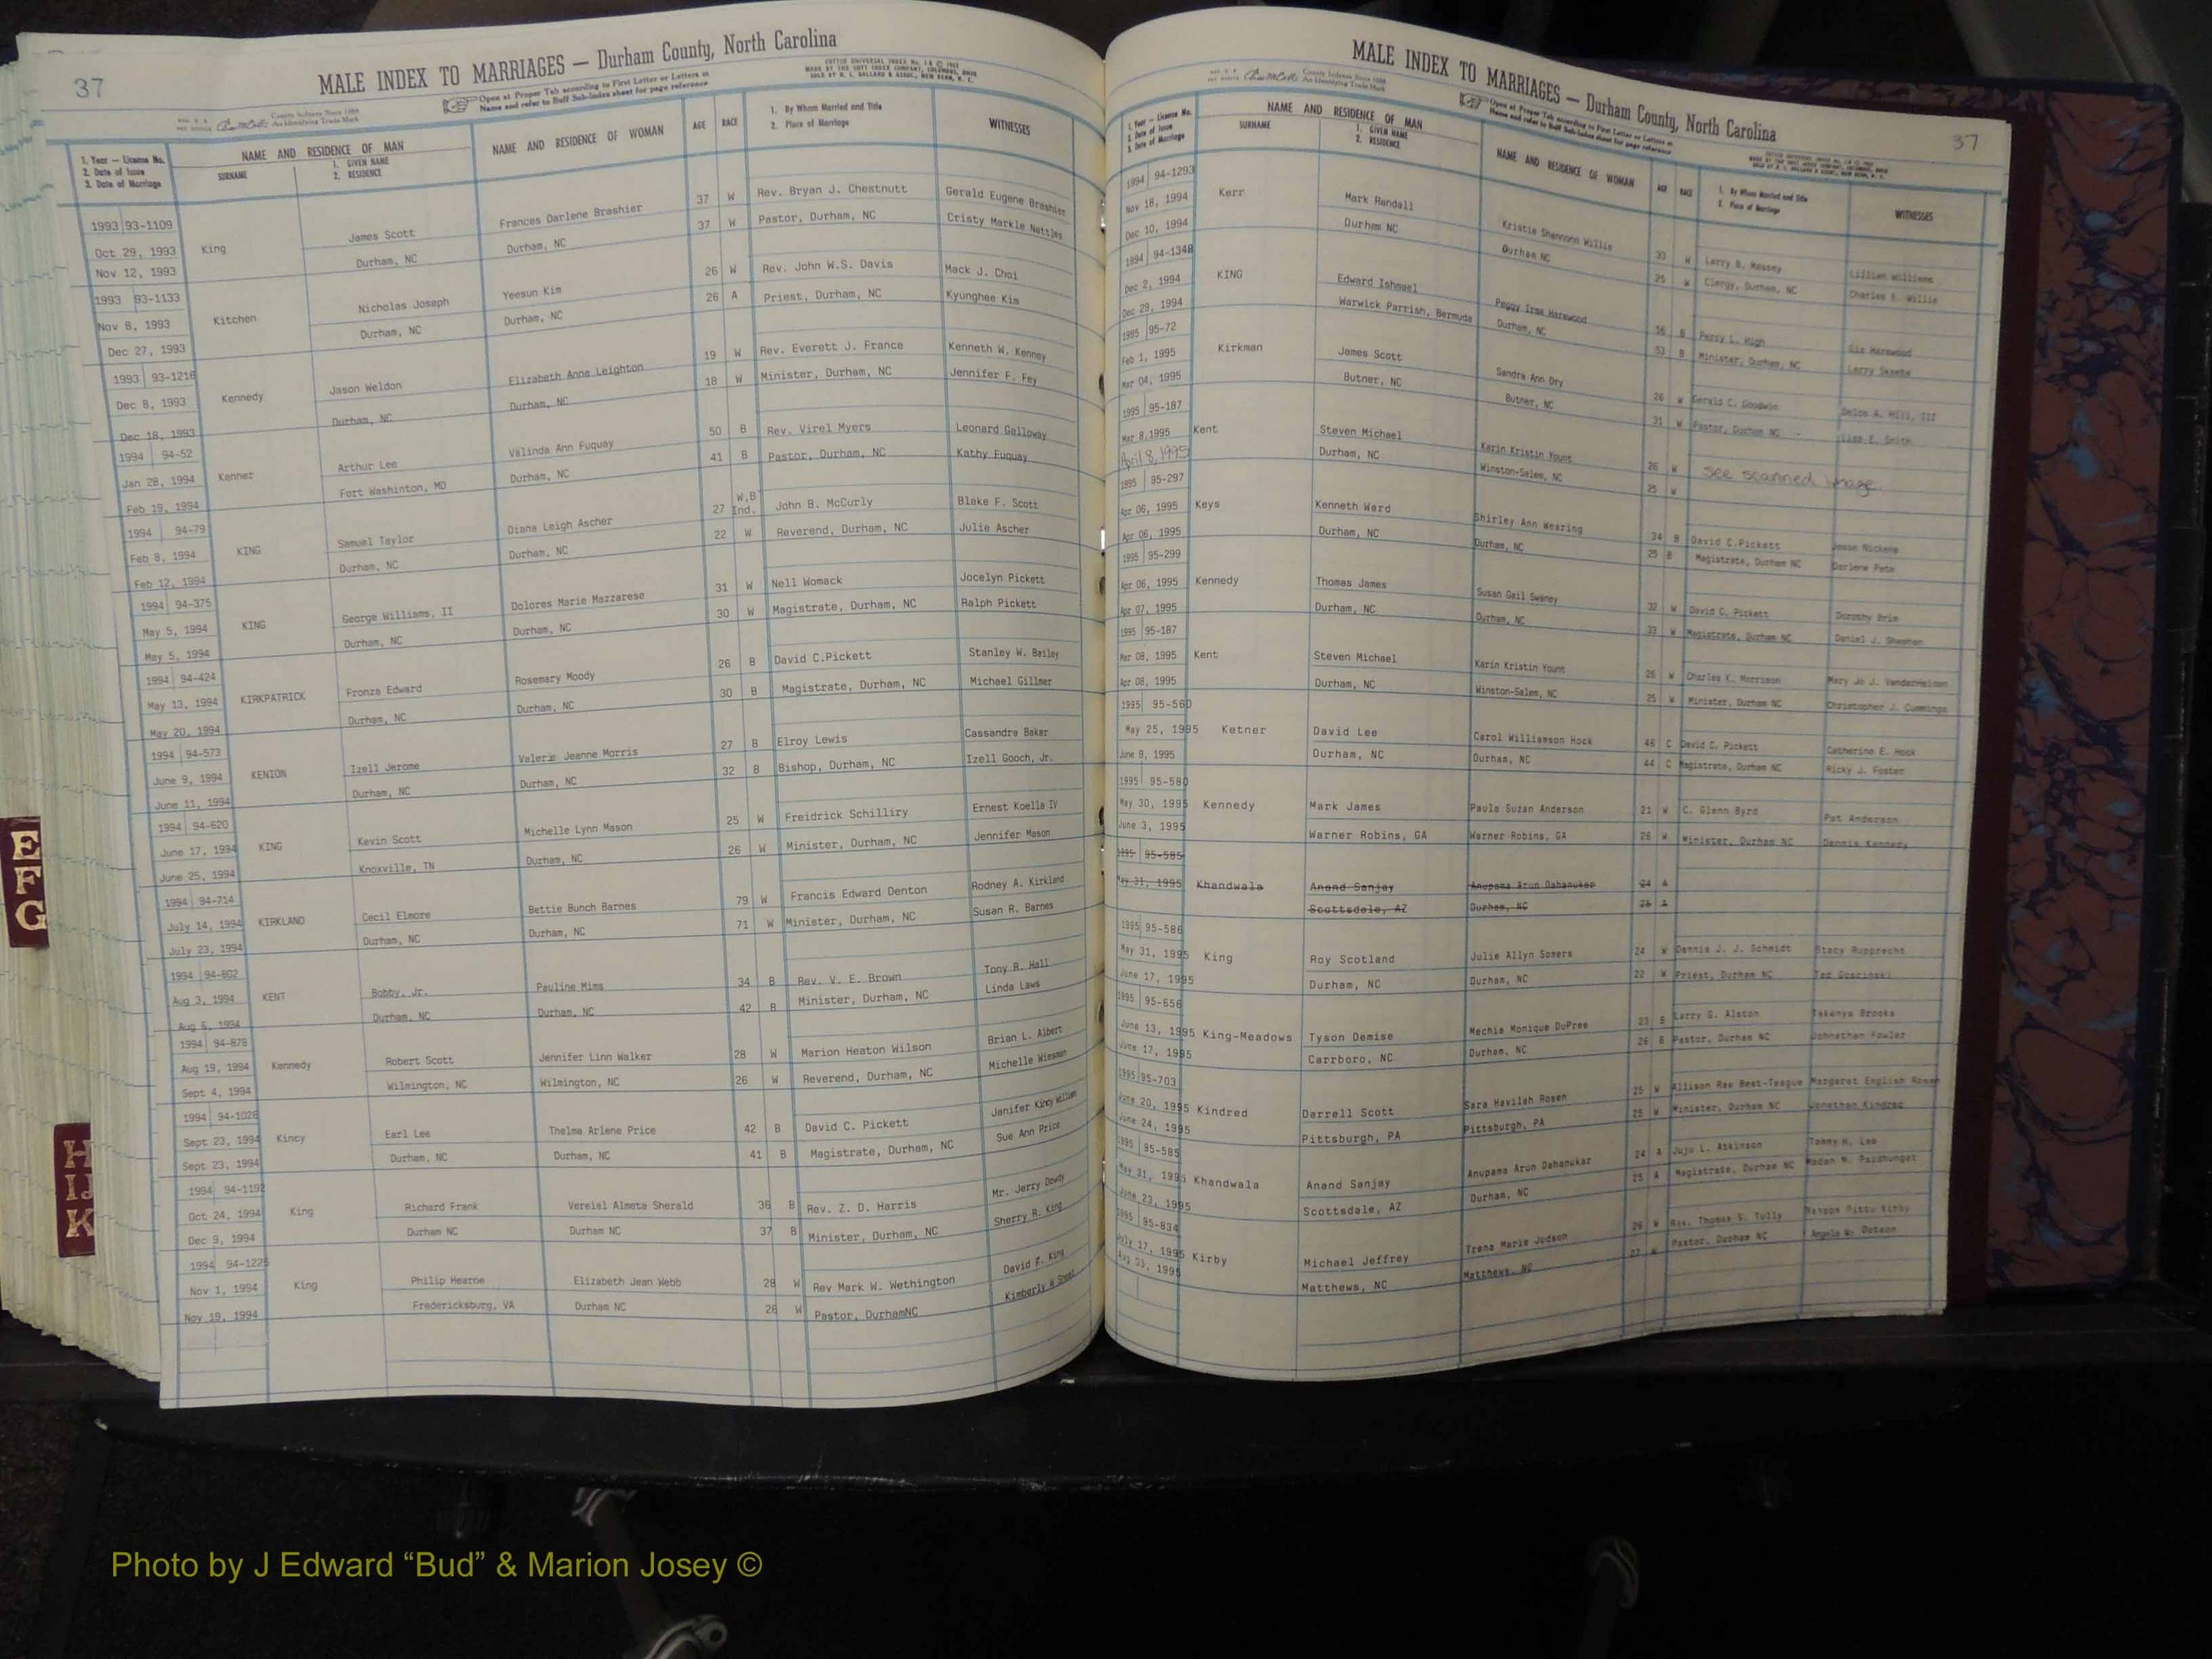 37
MALE INDEX TO MARRIAGES — Durham County, North Carolina
Open at Proper Tab according to First Letter or Letters of
Name and refer to Buff Sub-Index sheet for page reference
1. Year — License No.
2. Date of Issue
3. Date of Marriage
NAME AND RESIDENCE OF MAN
SURNAME
1. GIVEN NAME
2. RESIDENCE
NAME AND RESIDENCE OF WOMAN
AGE
RACE
1. By Whom Married and Title
2. Place of Marriage
WITNESSES
1993 93-1109 King James Scott Frances Darlene Brashier 37 W Rev. Bryan J. Chestnutt Gerald Eugene Brashier
Oct 29, 1993 Durham, NC Durham, NC 37 W Pastor, Durham, NC Cristy Markle Nettles
Nov 12, 1993
1993 93-1133 Kitchen Nicholas Joseph Yeesun Kim 26 W Rev. John W.S. Davis Mack J. Choi
Nov 8, 1993 Durham, NC Durham, NC 26 A Priest, Durham, NC Kyunghee Kim
Dec 27, 1993
1993 93-1216 Kennedy Jason Weldon Elizabeth Anne Leighton 19 W Rev. Everett J. France Kenneth W. Kenney
Dec 8, 1993 Durham, NC Durham, NC 18 W Minister, Durham, NC Jennifer F. Fey
Dec 18, 1993
1994 94-52 Kenner Arthur Lee Valinda Ann Fuquay 50 B Rev. Virel Myers Leonard Galloway
Jan 28, 1994 Fort Washinton, MD Durham, NC 41 B Pastor, Durham, NC Kathy Fuquay
Feb 19, 1994
1994 94-79 KING Samuel Taylor Diana Leigh Ascher 27 W,B Ind. John B. McCurly Blake F. Scott
Feb 8, 1994 Durham, NC Durham, NC 22 W Reverend, Durham, NC Julie Ascher
Feb 12, 1994
1994 94-375 KING George Williams, II Dolores Marie Mazzarese 31 W Nell Womack Jocelyn Pickett
May 5, 1994 Durham, NC Durham, NC 30 W Magistrate, Durham, NC Ralph Pickett
May 5, 1994
1994 94-424 KIRKPATRICK Fronza Edward Rosemary Moody 26 B David C.Pickett Stanley W. Bailey
May 13, 1994 Durham, NC Durham, NC 30 B Magistrate, Durham, NC Michael Gillmer
May 20, 1994
1994 94-573 KENION Izell Jerome Valerie Jeanne Morris 27 B Elroy Lewis Cassandra Baker
June 9, 1994 Durham, NC Durham, NC 32 B Bishop, Durham, NC Izell Gooch, Jr.
June 11, 1994
1994 94-620 KING Kevin Scott Michelle Lynn Mason 25 W Freidrick Schilliry Ernest Koella IV
June 17, 1994 Knoxville, TN Durham, NC 26 W Minister, Durham, NC Jennifer Mason
June 25, 1994
1994 94-714 KIRKLAND Cecil Elmore Bettie Bunch Barnes 79 W Francis Edward Denton Rodney A. Kirkland
July 14, 1994 Durham, NC Durham, NC 71 W Minister, Durham, NC Susan R. Barnes
July 23, 1994
1994 94-802 KENT Bobby, Jr. Pauline Mims 34 B Rev. V. E. Brown Tony R. Hall
Aug 3, 1994 Durham, NC Durham, NC 42 B Minister, Durham, NC Linda Laws
Aug 6, 1994
1994 94-878 Kennedy Robert Scott Jennifer Linn Walker 28 W Marion Heaton Wilson Brian L. Albert
Aug 19, 1994 Wilmington, NC Wilmington, NC 26 W Reverend, Durham, NC Michelle Wiesman
Sept 4, 1994
1994 94-1028 Kincy Earl Lee Thelma Arlene Price 42 B David C. Pickett Janifer Kincy William
Sept 23, 1994 Durham, NC Durham, NC 41 B Magistrate, Durham, NC Sue Ann Price
Sept 23, 1994
1994 94-1192 King Richard Frank Vereial Almeta Sherald 36 B Rev. Z. D. Harris Mr. Jerry Dowdy
Oct 24, 1994 Durham NC Durham NC 37 B Minister, Durham, NC Sherry R. King
Dec 9, 1994
1994 94-1225 King Philip Hearne Elizabeth Jean Webb 28 W Rev Mark W. Wethington David F. King
Nov 1, 1994 Fredericksburg, VA Durham NC 26 W Pastor, DurhamNC Kimberly
Nov 19, 1994
E
F
G
H
IJ
K
MALE INDEX TO MARRIAGES — Durham County, North Carolina
37
Open at Proper Tab according to First Letter or Letters of
Name and refer to Buff Sub-Index sheet for page reference
1. Year — License No.
2. Date of Issue
3. Date of Marriage
NAME AND RESIDENCE OF MAN
SURNAME
1. GIVEN NAME
2. RESIDENCE
NAME AND RESIDENCE OF WOMAN
AGE
RACE
1. By Whom Married and Title
2. Place of Marriage
WITNESSES
1994 94-1293 Kerr Mark Randall Kristie Shannonn Willis 33 W Larry B. Massey Lillian Williams
Nov 18, 1994 Durham NC Durham NC 25 W Clergy, Durham, NC Charles E. Willis
Dec 10, 1994
1994 94-1348 KING Edward Ishmael Peggy Irma Harewood 56 B Percy L. High Harewood
Dec 2, 1994 Warwick Parrish, Bermuda Durham, NC 53 B Minister, Durham, NC Larry Skeete
Dec 29, 1994
1995 95-72 Kirkman James Scott Sandra Ann Dry 26 W Gerald C. Goodwin Delos A. Hill, III
Feb 1, 1995 Butner, NC Butner, NC 31 W Pastor, Durham NC Lisa E. Smith
Mar 04, 1995
1995 95-187 Kent Steven Michael Karin Kristin Yount 26 W See scanned image.
Mar 8,1995 Durham, NC Winston-Salem, NC 25 W
April 8, 1995
1995 95-297 Keys Kenneth Ward Shirley Ann Wearing 34 B David C.Pickett Jesse Nickens
Apr 06, 1995 Durham, NC Durham, NC 25 B Magistrate, Durham NC Darlene Pete
Apr 06, 1995
1995 95-299 Kennedy Thomas James Susan Gail Swaney 32 W David C. Pickett Dorothy Brim
Apr 06, 1995 Durham, NC Durham, NC 33 W Magistrate, Durham NC Daniel J. Sheehan
Apr 07, 1995
1995 95-187 Kent Steven Michael Karin Kristin Yount 26 W Charles K. Morrison Mary Jo J. VanderHeiman
Mar 08, 1995 Durham, NC Winston-Salem, NC 25 W Minister, Durham NC Christopher J. Cummings
Apr 08, 1995
1995 95-560 Ketner David Lee Carol Williamson Hock 46 C David C. Pickett Catherine E. Hock
May 25, 1995 Durham, NC Durham, NC 44 C Magistrate, Durham NC Ricky J. Foster
June 9, 1995
1995 95-580 Kennedy Mark James Paula Suzan Anderson 21 W C. Glenn Byrd Pat Anderson
May 30, 1995 Warner Robins, GA Warner Robins, GA 26 W Minister, Durham NC Dennis Kennedy
June 3, 1995
1995 95-585 Khandwala Anand Sanjay Anupama Arun Dahanukar 24 A
May 31, 1995 Scottsdale, AZ Durham, NC 25 A
1995 95-586 King Roy Scotland Julie Allyn Somers 24 W Dennis J. J. Schmidt Stacy Rupprecht
May 31, 1995 Durham, NC Durham, NC 22 W Priest, Durham NC Ted Goscinski
June 17, 1995
1995 95-656 King-Meadows Tyson Demise Mechie Monique DuPree 23 B Larry G. Alston Takenya Brooks
June 13, 1995 Carrboro, NC Durham, NC 26 B Pastor, Durham NC Johnathan Fowler
June 17, 1995
1995 95-703 Kindred Darrell Scott Sara Havilah Rosen 25 W Allison Rae Best-Teague Margaret English Rosen
June 20, 1995 Pittsburgh, PA Pittsburgh, PA 25 W Minister, Durham NC Jonathan Kindred
June 24, 1995
1995 95-585 Khandwala Anand Sanjay Anupama Arun Dahanukar 24 A Juju L. Atkinson Tommy H. Lee
May 31, 1995 Scottsdale, AZ Durham, NC 25 A Magistrate, Durham NC Madan M. Paidhungat
June 23, 1995
1995 95-834 Kirby Michael Jeffrey Trena Marie Judson 26 W Rev. Thomas S. Tully Ransom Pitts Kirby
July 17, 1995 Matthews, NC Matthews, NC 27 W Pastor, Durham NC Angela W. Dotson
Aug 05, 1995
Photo by J Edward “Bud” & Marion Josey ©